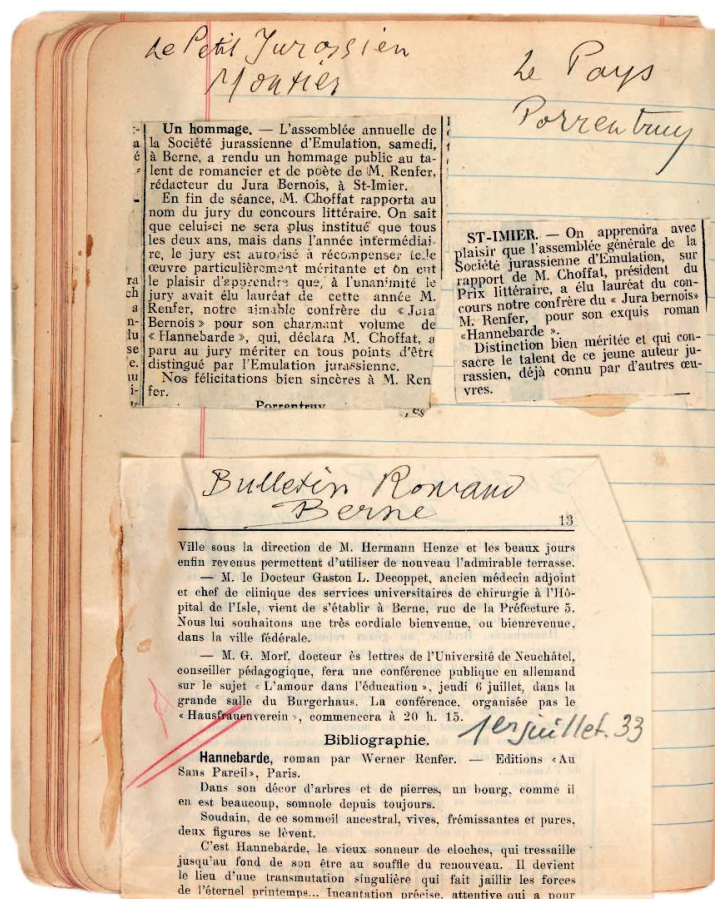 Le Petit Jurassien
Moutier
Un hommage. — L'assemblée annuelle de
la Société jurassienne d'Emulation, samedi,
à Berne, a rendu un hommage public au ta-
lent de romancier et de poète de M. Renfer,
rédacteur du Jura Bernois, à St-Imier.
En fin de séance, M. Choffat rapporta au
nom du jury du concours littéraire. On sait
que celui-ci ne sera plus institué que tous
les deux ans, mais dans l'année intermédiai-
re, le jury est autorisé à récompenser telle
œuvre particulièrement méritante et on eut
le plaisir d'apprendre que, à l'unanimité le
jury avait élu lauréat de cette année M.
Renfer, notre aimable confrère du « Jura
Bernois » pour son charmant volume de
« Hannebarde », qui, déclara M. Choffat, a
paru au jury mériter en tous points d'être
distingué par l'Emulation jurassienne.
Nos félicitations bien sincères à M. Ren
fer.
Porrentruy
Le Pays
Porrentruy
ST-IMIER. — On apprendra avec
plaisir que l'assemblée générale de la
Société jurassienne d'Emulation, sur
rapport de M. Choffat, président du
Prix littéraire, a élu lauréat du con-
cours notre confrère du « Jura bernois»
M. Renfer, pour son exquis roman
«Hannebarde ».
Distinction bien méritée et qui con-
sacre le talent de ce jeune auteur ju-
rassien, déjà connu par d'autres œu-
vres.
Bulletin Romand
Berne
13
Ville sous la direction de M. Hermann Henze et les beaux jours
enfin revenus permettent d'utiliser de nouveau l'admirable terrasse.
— M. le Docteur Gaston L. Decoppet, ancien médecin adjoint
et chef de clinique des services universitaires de chirurgie à l'Hô-
pital de l'Isle, vient de s'établir à Berne, rue de la Préfecture 5.
Nous lui souhaitons une très cordiale bienvenue, ou bienrevenue,
dans la ville fédérale.
— M. G. Morf, docteur ès lettres de l'Université de Neuchâtel,
conseiller pédagogique, fera une conférence publique en allemand
sur le sujet « L'amour dans l'éducation », jeudi 6 juillet, dans la
grande salle du Burgerhaus. La conférence, organisée pas le
« Hausfrauenverein », commencera à 20 h. 15.
1er juillet. 33
Bibliographie.
Hannebarde, roman par Werner Renfer. — Editions «Au
Sans Pareil», Paris.
Dans son décor d'arbres et de pierres, un bourg, comme il
en est beaucoup, somnole depuis toujours.
Soudain, de ce sommeil ancestral, vives, frémissantes et pures,
deux figures se lèvent.
C'est Hannebarde, le vieux sonneur de cloches, qui tressaille
jusqu'au fond de son être au souffle du renouveau. Il devient
le lieu d'une transmutation singulière qui fait jaillir les forces
de l'éternel printemps... Incantation précise, attentive qui a pour